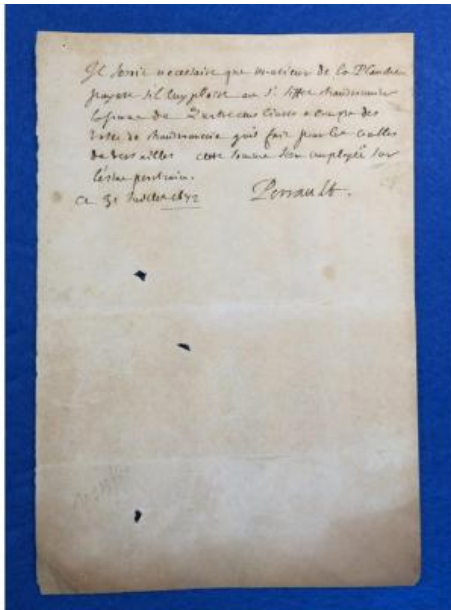 Il seroit necessaire que monsieur de la Planche
payast s'il luy plaist au Sr
la somme de quatre cens livres a compte des
de chaudronnerie qu'il fait pour les
de Versailles cette somme sera employée sur
l'estat prochain.
a 31 Juillet 1672 Perrault.